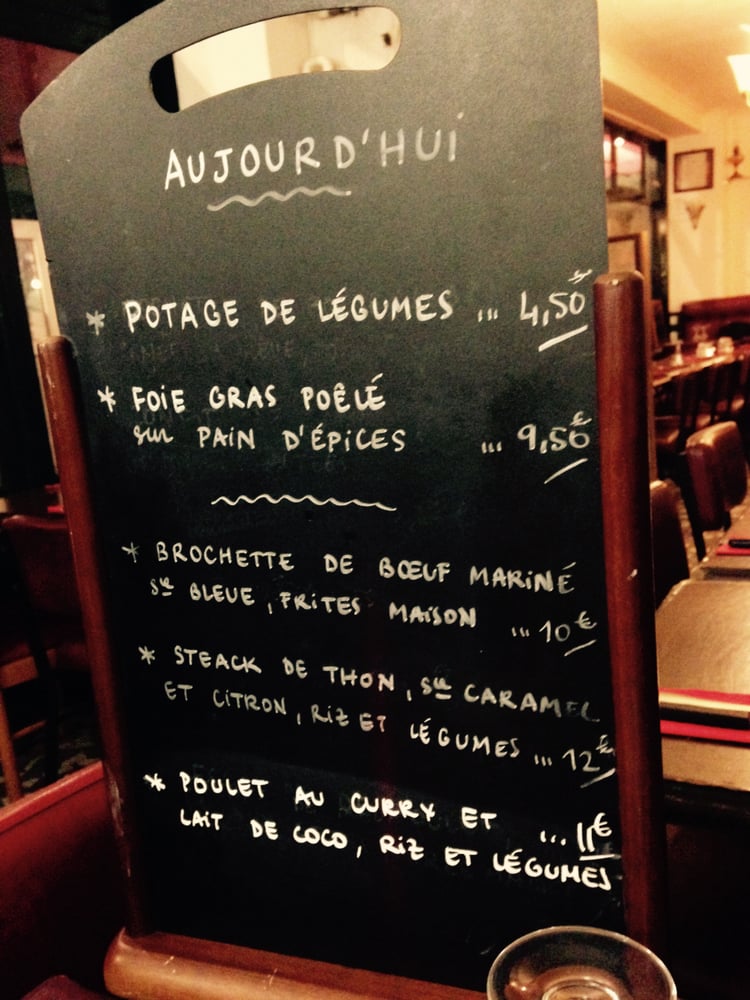 AUJOURD'HUI
* POTAGE DE LÉGUMES ... 4,50€
* FOIE GRAS POÊLÉ
sur PAIN D'ÉPICES ... 9,50€
* BROCHETTE DE BŒUF MARINÉ
Sce BLEUE, FRITES MAISON ... 10€
* STEACK DE THON, Sce CARAMEL
ET CITRON, RIZ ET LÉGUMES ... 12€
* POULET AU CURRY ET ... 11€
LAIT DE COCO, RIZ ET LÉGUMES